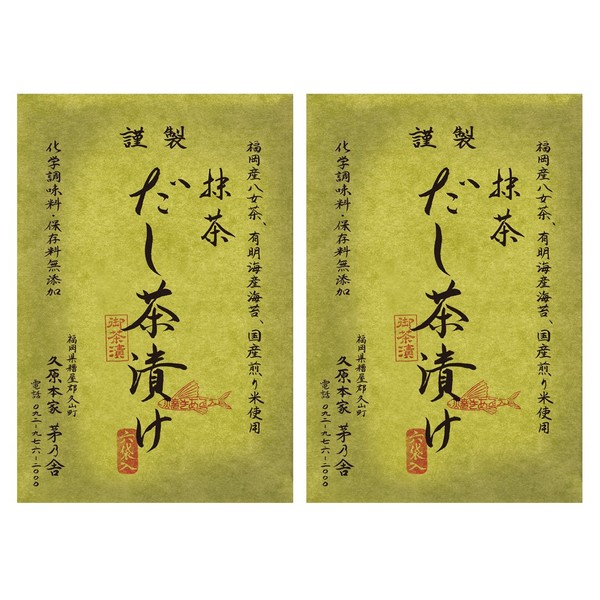 謹製
福岡産八女茶、有明海産海苔、国産煎り米使用
抹茶
だし茶漬け
御茶漬
六袋入
化学調味料・保存料無添加
福岡県糟屋郡久山町
久原本家 茅乃舎
電話 〇九二-九七六-二〇〇〇
謹製
福岡産八女茶、有明海産海苔、国産煎り米使用
抹茶
だし茶漬け
御茶漬
六袋入
化学調味料・保存料無添加
福岡県糟屋郡久山町
久原本家 茅乃舎
電話 〇九二-九七六-二〇〇〇